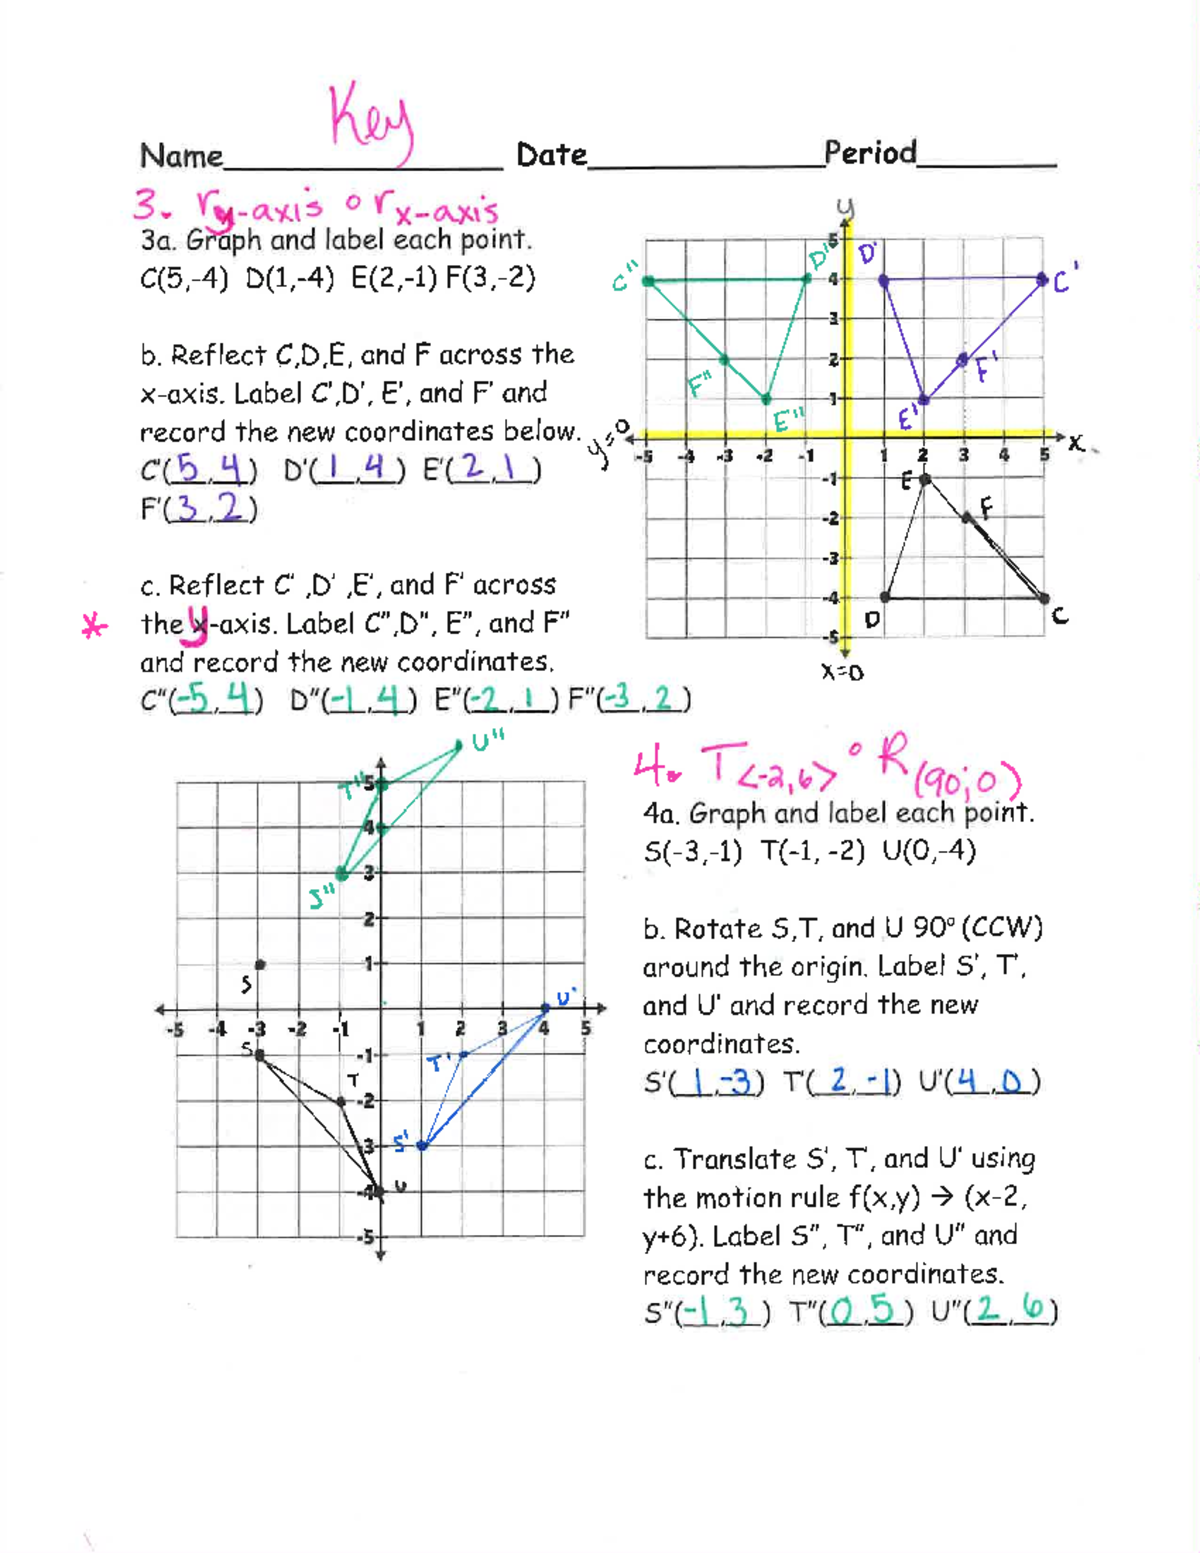 Key
Name Date Period
3. ry-axis ∘ rx-axis
3a. Graph and label each point.
C(5,-4) D(1,-4) E(2,-1) F(3,-2)
b. Reflect C,D,E, and F across the
x-axis. Label C',D', E', and F' and
record the new coordinates below.
C'(5,4) D'(1,4) E'(2,1)
F'(3,2)
c. Reflect C' ,D' ,E', and F' across
* the y-axis. Label C",D", E", and F"
and record the new coordinates.
C"(-5,4) D"(-1,4) E"(-2,1) F"(-3,2)
y
5
C" D" D' C'
4
3
F" 2 F'
E" 1 E'
y=0 x
-5 -4 -3 -2 -1 1 2 3 4 5
-1 E
-2 F
-3
-4 D C
-5
x=0
U"
T" 5
4
S" 3
2
1
S
U'
-5 -4 -3 -2 -1 1 2 3 4 5
S -1 T'
T -2
-3 S'
-4 U
-5
4. T<-2,6> ∘ R(90°,0)
4a. Graph and label each point.
S(-3,-1) T(-1, -2) U(0,-4)
b. Rotate S,T, and U 90° (CCW)
around the origin. Label S', T',
and U' and record the new
coordinates.
S'(1,-3) T'(2,-1) U'(4,0)
c. Translate S', T', and U' using
the motion rule f(x,y) → (x-2,
y+6). Label S", T", and U" and
record the new coordinates.
S"(-1,3) T"(0,5) U"(2,6)